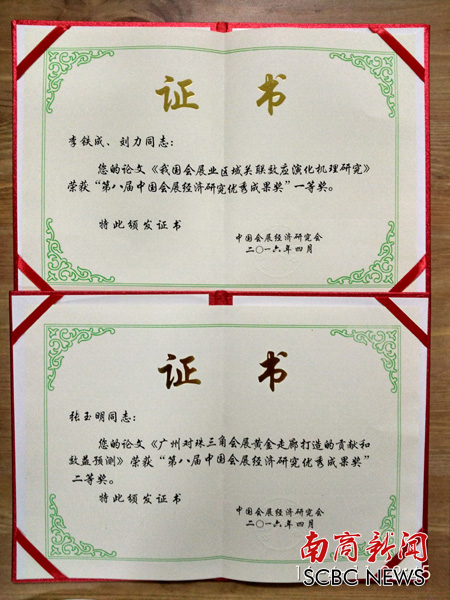 证 书
李铁成、刘力同志：
您的论文《我国会展业区域关联效应演化机理研究》
荣获“第八届中国会展经济研究优秀成果奖”一等奖。
特此颁发证书
中国会展经济研究会
二〇一六年四月
证 书
张玉明同志：
您的论文《广州对珠三角会展黄金走廊打造的贡献和
效益预测》荣获“第八届中国会展经济研究优秀成果奖”
二等奖。
特此颁发证书
中国会展经济研究会
二〇一六年四月
南商新闻
SCBC NEWS